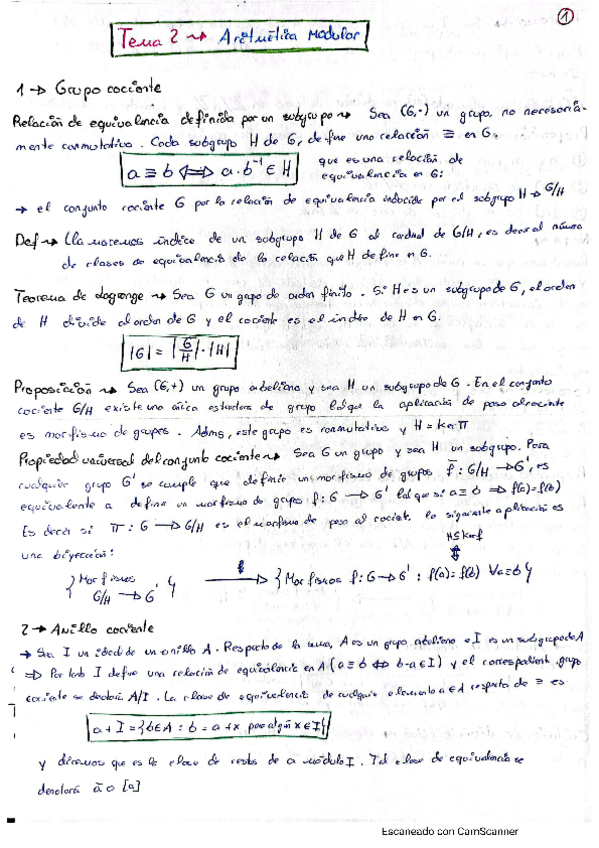 1
Tema 2 → Aritmética Modular
1 → Grupo cociente
Relación de equivalencia definida por un subgrupo → Sea (G,·) un grupo no necesaria-
mente conmutativo. Cada subgrupo H de G, define una relación ≡ en G.
a ≡ b ⟺ a·b⁻¹ ∈ H que es una relación de
equivalencia en G:
→ el conjunto cociente G por la relación de equivalencia inducida por el subgrupo H → G/H
Def → Llamaremos índice de un subgrupo H de G al cardinal de G/H, es decir al número
de clases de equivalencia de la relación que H define en G.
Teorema de Lagrange → Sea G un grupo de orden finito. Si H es un subgrupo de G, el orden
de H divide al orden de G y el cociente es el índice de H en G.
|G| = |G/H|·|H|
Proposición → Sea (G,+) un grupo abeliano y sea H un subgrupo de G. En el conjunto
cociente G/H existe una única estructura de grupo tal que la aplicación de paso al cociente
es morfismo de grupos. Además, este grupo es conmutativo y H = Ker π
Propiedad universal del conjunto cociente → Sea G un grupo y sea H un subgrupo. Para
cualquier grupo G' se cumple que definir un morfismo de grupos f̄: G/H → G', es
equivalente a definir un morfismo de grupos f: G → G' tal que si a ≡ b ⇒ f(a)=f(b)
Es decir si π: G → G/H es el morfismo de paso al cociente, la siguiente aplicación es
una biyección: H ≤ Ker f
{Morfismos G/H → G'} → {Morfismos f: G → G' : f(a)=f(b) ∀a≡b}
2 → Anillo cociente
→ Sea I un ideal de un anillo A. Respecto de la suma, A es un grupo abeliano e I es un subgrupo de A
⇒ Por tanto I define una relación de equivalencia en A (a ≡ b ⟺ b-a ∈ I) y el correspondient. grupo
cociente se denotará A/I. La clase de equivalencia de cualquier elemento a ∈ A respecto de ≡ es
a + I = {b ∈ A : b = a + x para algún x ∈ I}
y diremos que es la clase de restos de a módulo I. Tal clase de equivalencia se
denotará ā o [a]
Escaneado con CamScanner